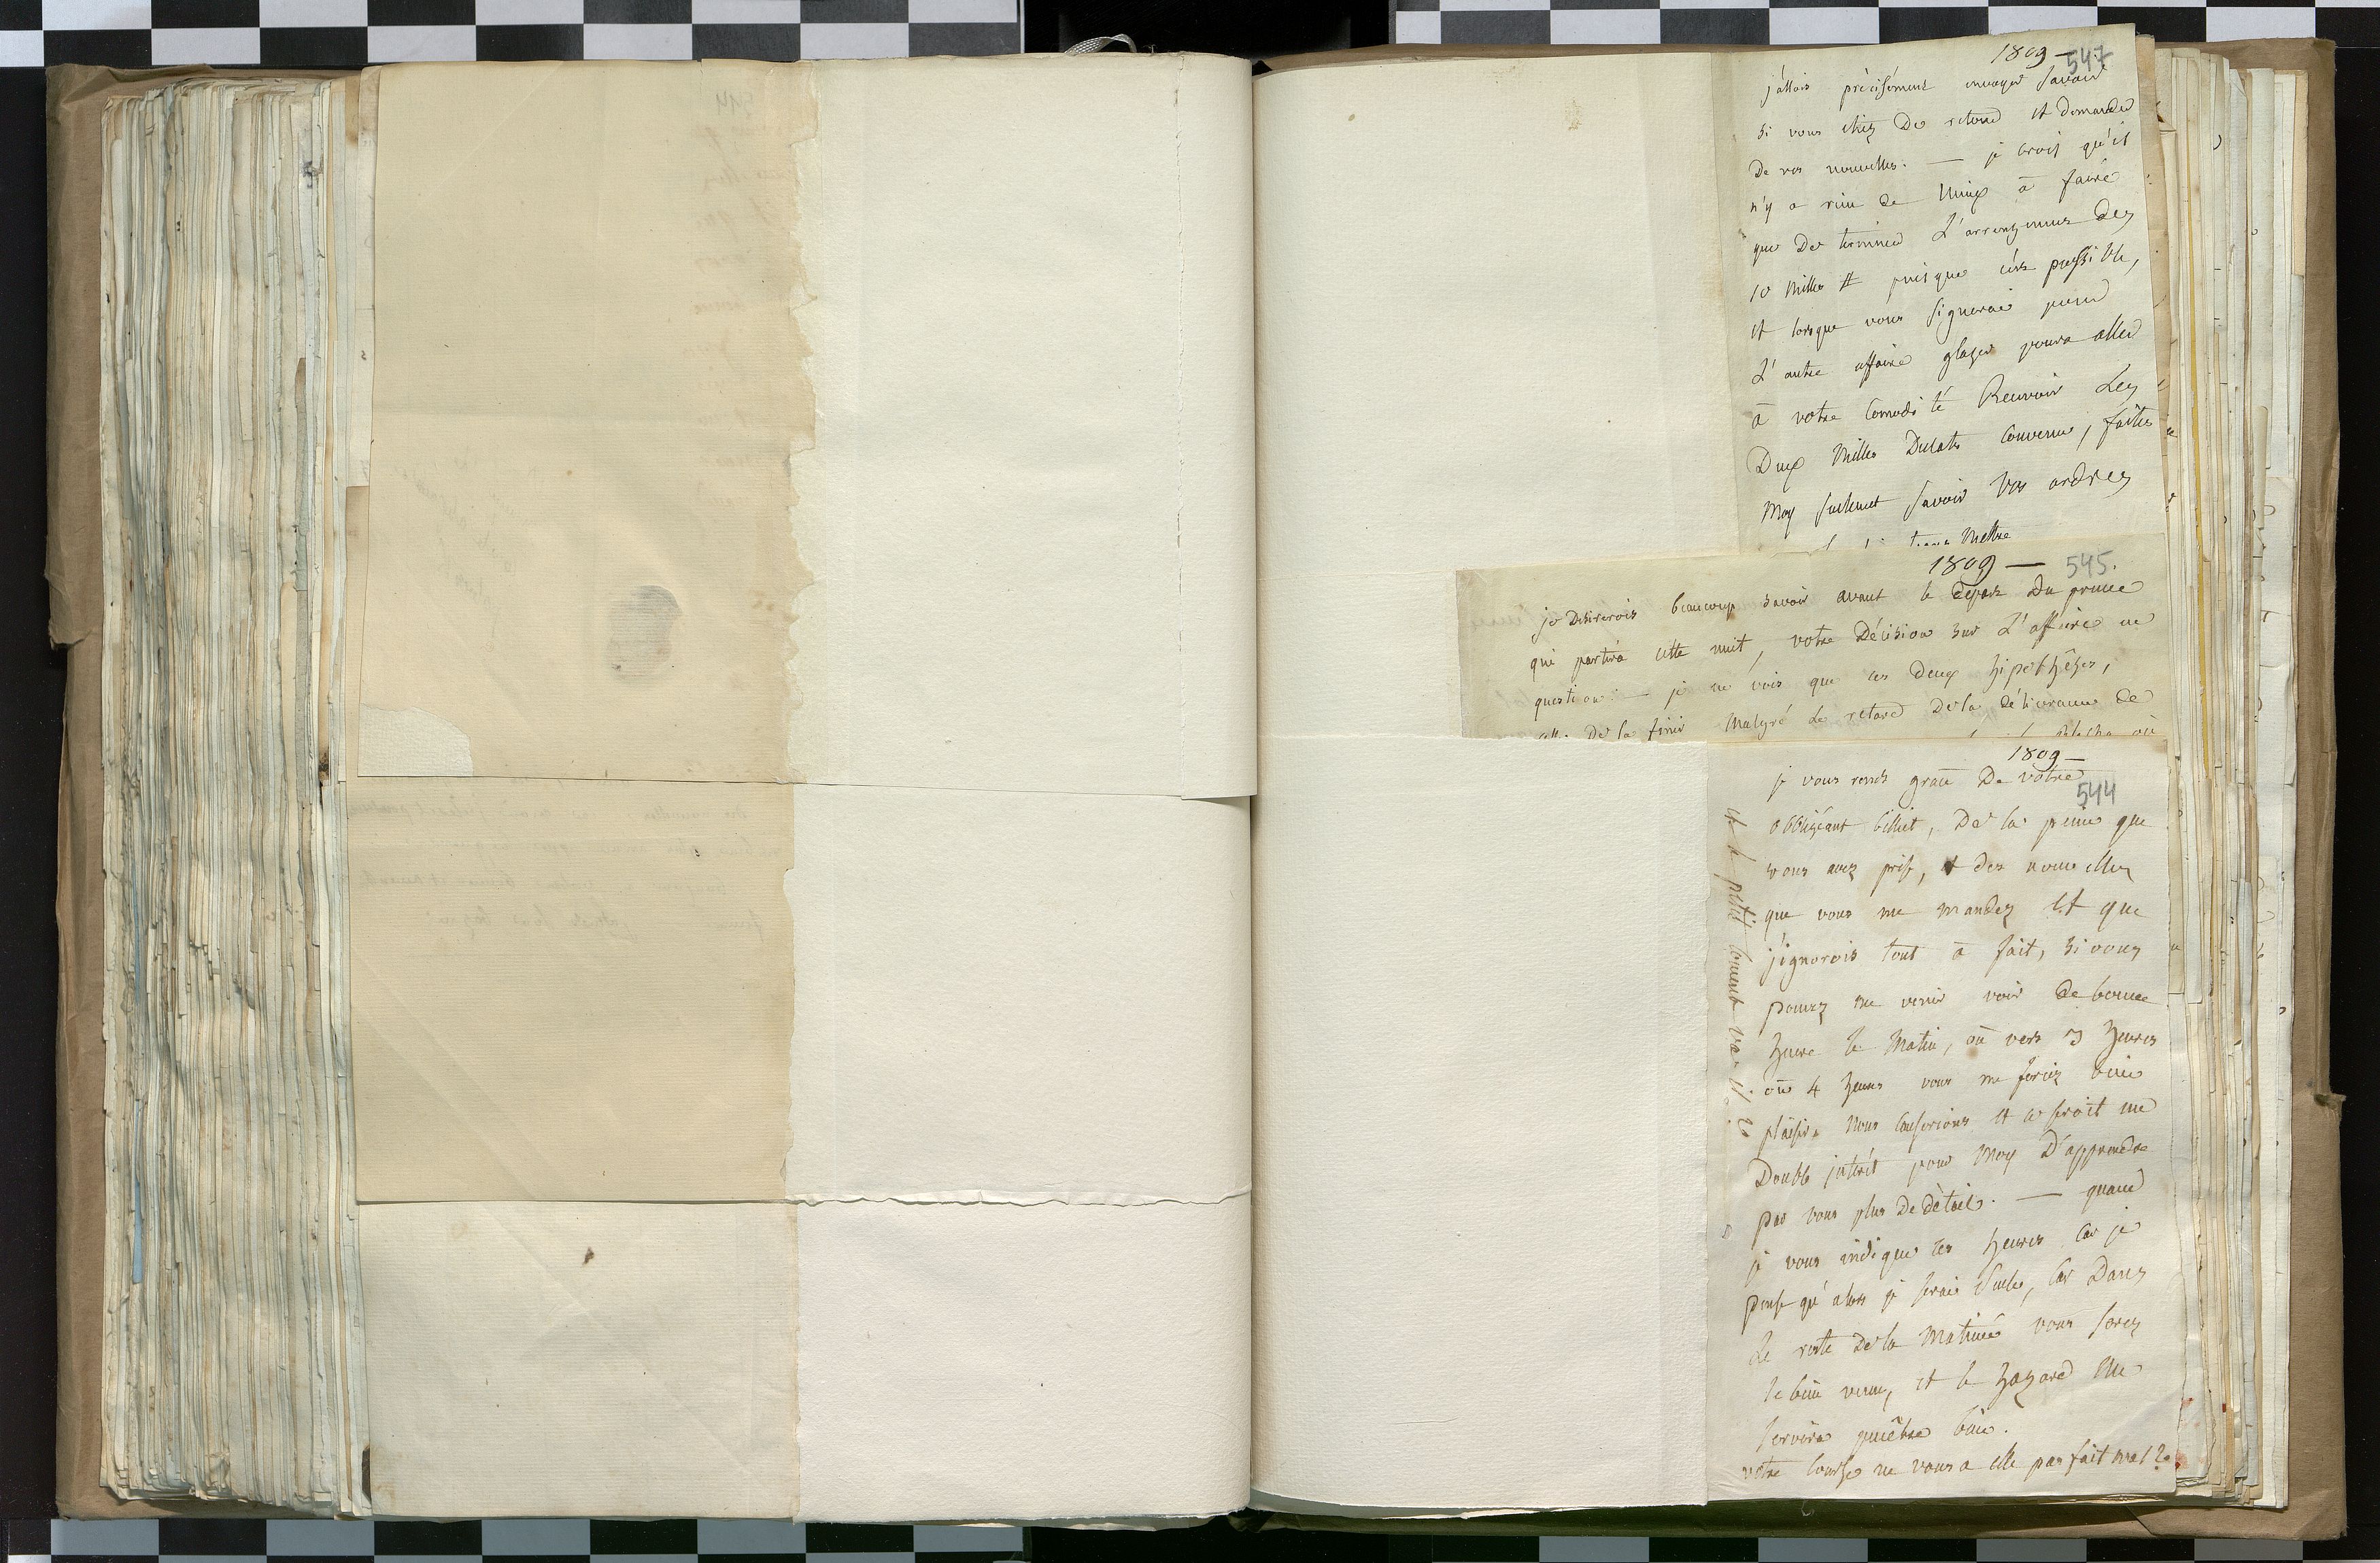 1809 —
547
j'allois précisément envoyer savoir
si vous etiez De retour et demander
De vos nouvelles. — je crois qu'il
n'y a rien de mieux à faire
que De terminer L'arrengement Des
10 milles # puisque c'est possible,
et lorsque vous signerai pour
L'autre affaire glazer poura aller
à votre Comodité Recevoir Les
Deux Milles Ducats Convenu, faites
Moy seulement savoir Vos ordres
Mettre
1809 —
545.
je Desirerois beaucoup savoir avant le depart Du prince
qui partira cette nuit, votre Décision sur L'affaire en
question. — je ne vois que ces Deux hipothêzes,
celle De la finir Malgré Le retard De la délivrance de
1809 —
544
je vous rends grace De votre
obbligéant billiet, De la peine que
vous avez prise, et des nouvelles
que vous me mandez et que
j'ignorois tout à fait, si vous
pouvez me venir voir de bonne
heure le Matin, où vers 3 heures
où 4 heures vous me feriez bien
plaisir. Nous causerions et ce seroit un
Double intérêt pour Moy D'apprendre
par vous plus De détail. — quand
je vous indique ces heures car je
pense qu'alors je serai seule, car Dans
Le reste De la Matinée vous serez
le bien venu, et le hazard me
servira peutêtre bien.
votre Course ne vous a elle pas fait mal ?
et le petit coment va-il ?